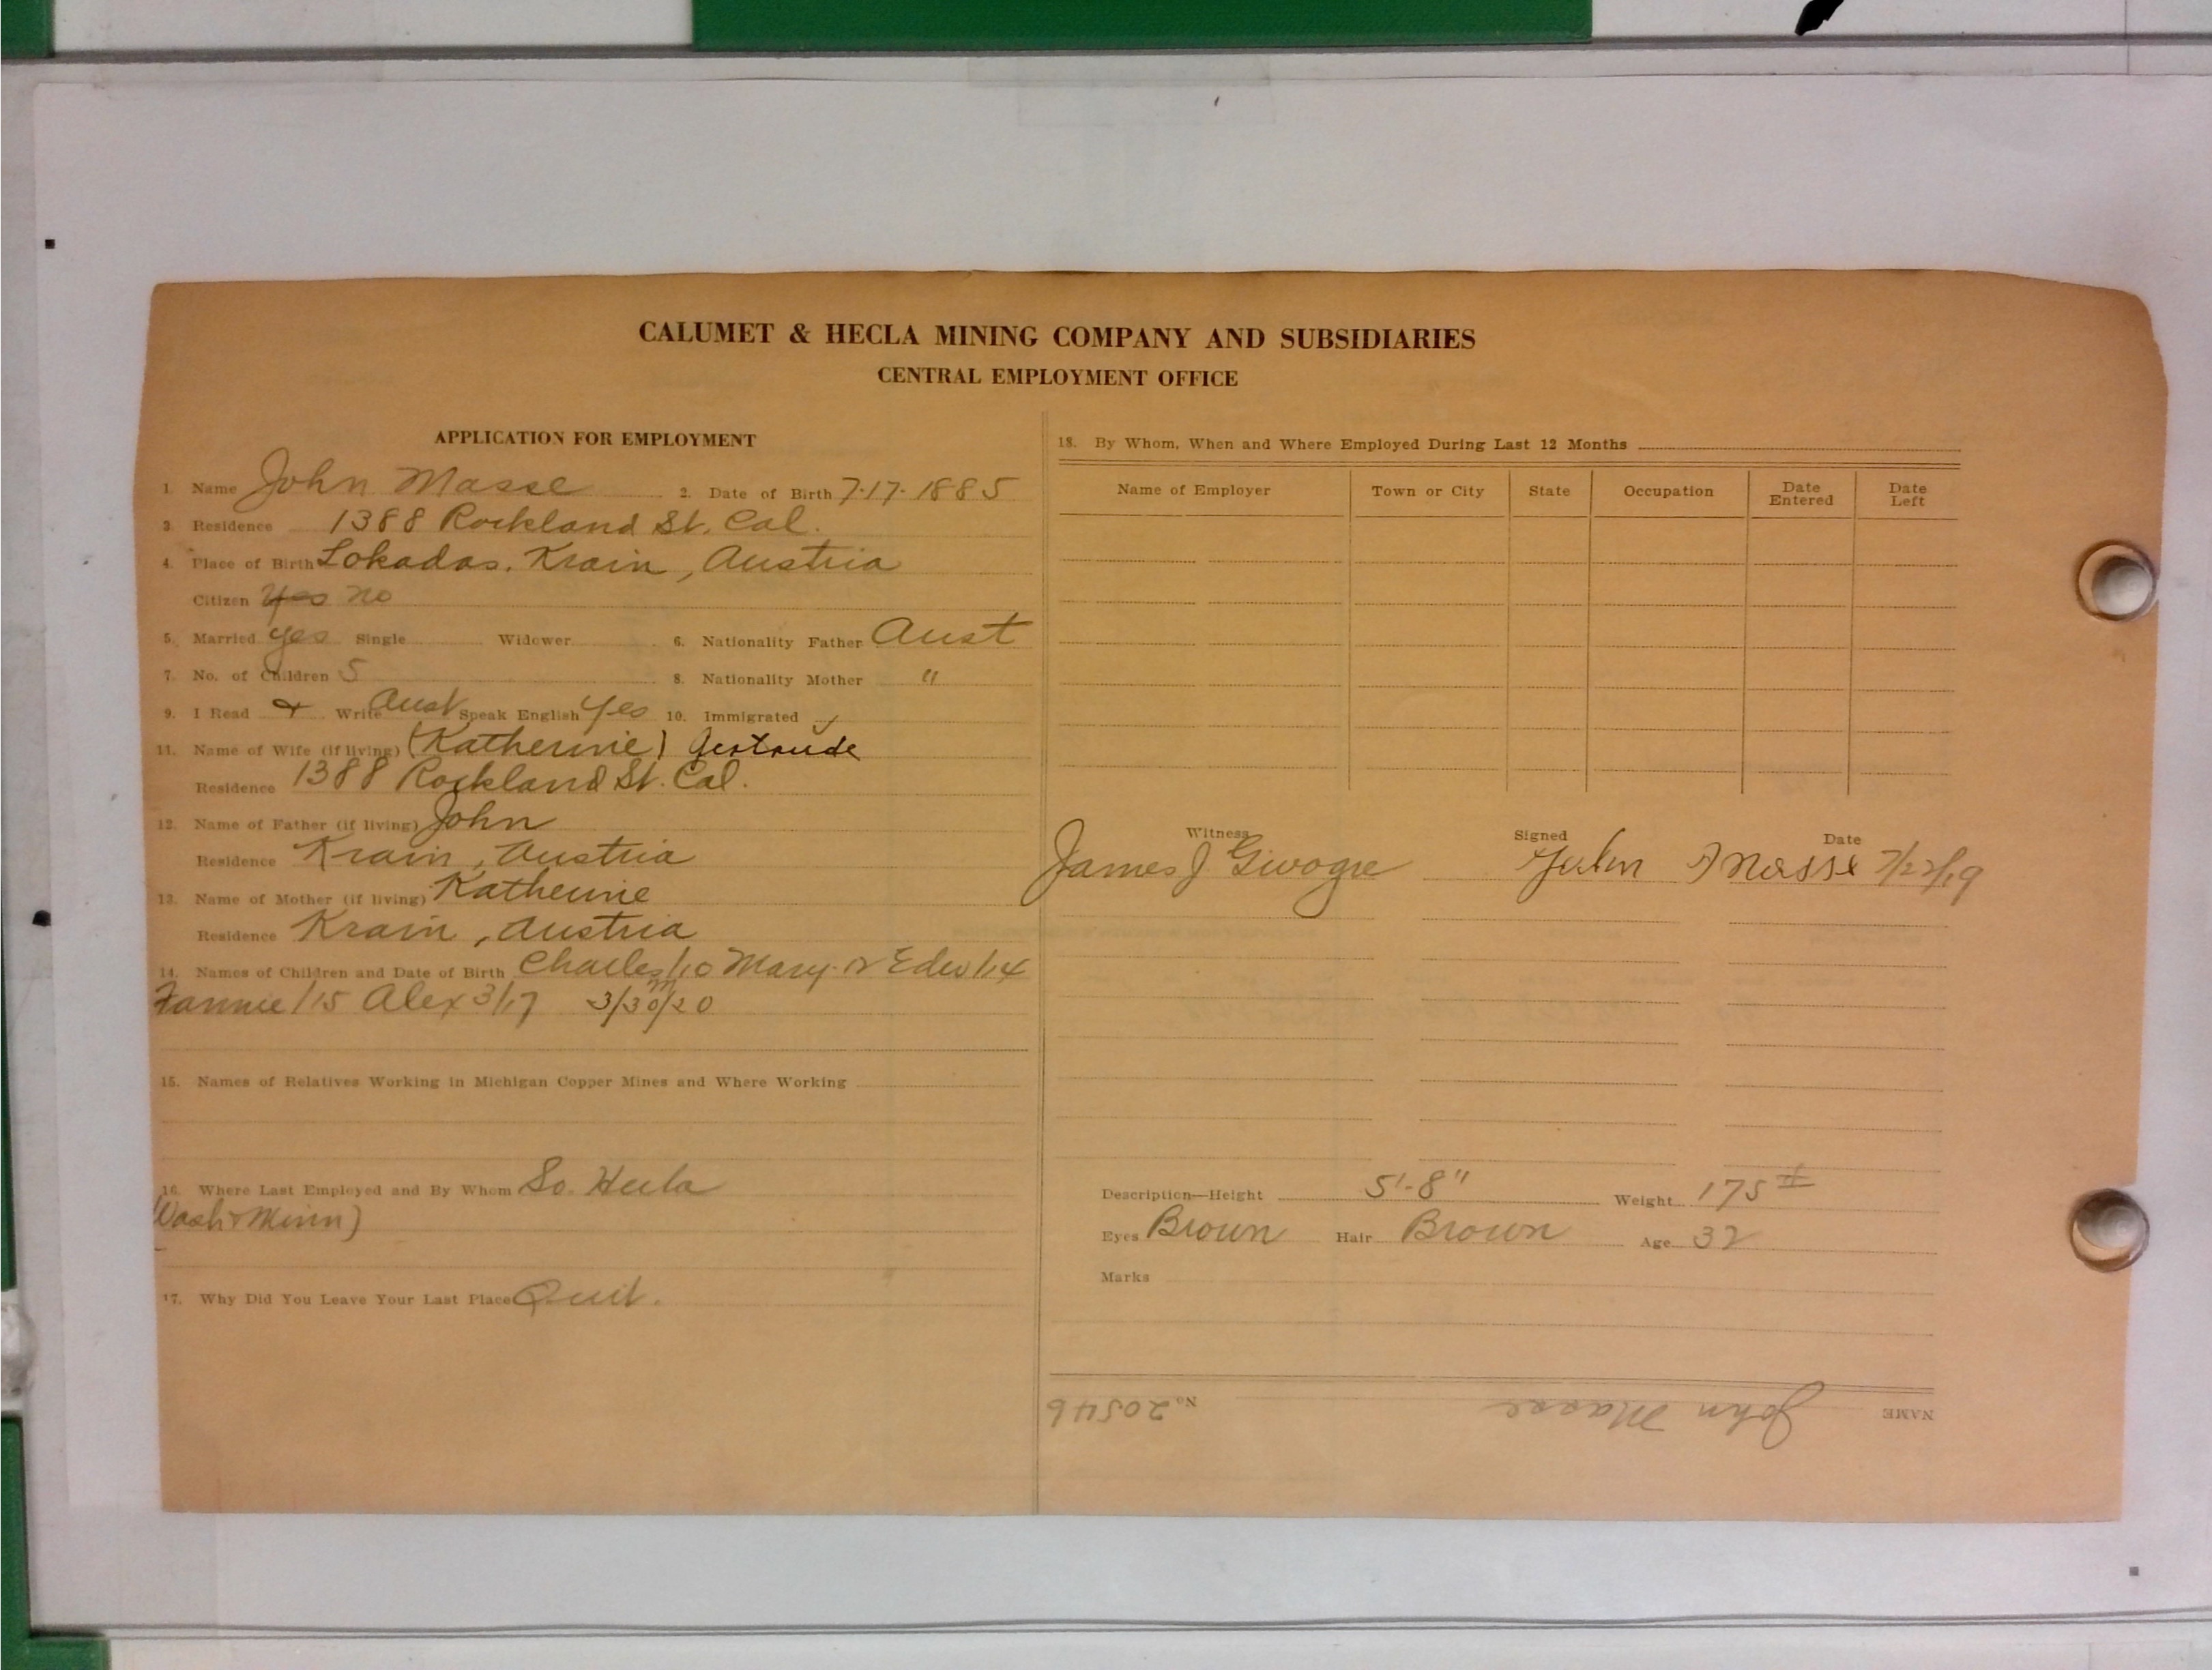 CALUMET & HECLA MINING COMPANY AND SUBSIDIARIES
CENTRAL EMPLOYMENT OFFICE
APPLICATION FOR EMPLOYMENT
1. Name John Masse 2. Date of Birth 7-17-1885
3. Residence 1388 Rockland St. Cal.
4. Place of Birth Lokadas, Krain, Austria
Citizen Yes no
5. Married yes Single Widower 6. Nationality Father Aust
7. No. of Children 5 8. Nationality Mother "
9. I Read & Write Aust Speak English Yes 10. Immigrated
11. Name of Wife (if living) (Katherine) Gertrude
Residence 1388 Rockland St. Cal.
12. Name of Father (if living) John
Residence Krain, Austria
13. Name of Mother (if living) Katherine
Residence Krain, Austria
14. Names of Children and Date of Birth Charles /10 Mary Edw /14
Fannie /15 Alex 3/17 3/30/20
15. Names of Relatives Working in Michigan Copper Mines and Where Working
16. Where Last Employed and By Whom So. Hecla
(Wash + Minn)
17. Why Did You Leave Your Last Place Quit.
18. By Whom, When and Where Employed During Last 12 Months
Name of Employer Town or City State Occupation Date Entered Date Left
Witness Signed Date
James J John Masse 7/22/19
Description—Height 5'-8" Weight 175 #
Eyes Brown Hair Brown Age 32
Marks
NAME John Masse No. 20546